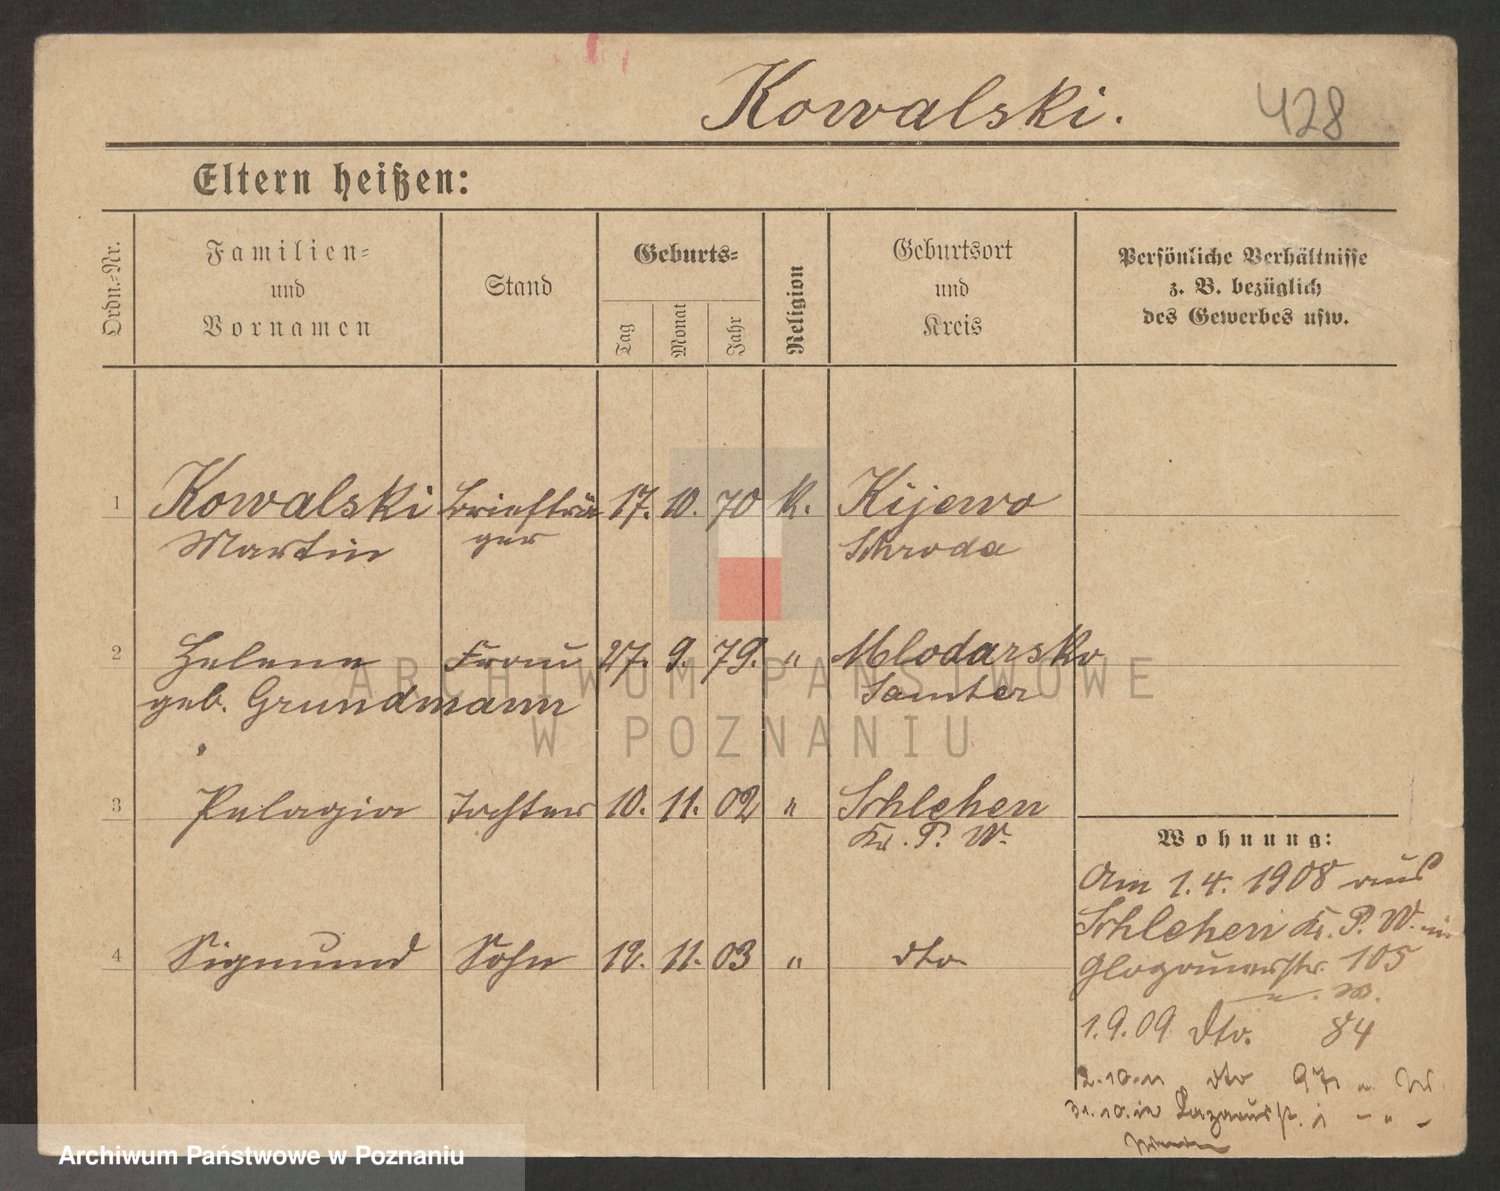 Kowalski. 428
Eltern heißen:
Ordn.-Nr.
Familien-
und
Vornamen
Stand
Geburts-
Tag
Monat
Jahr
Religion
Geburtsort
und
Kreis
Persönliche Verhältnisse
z. B. bezüglich
des Gewerbes usw.
1 Kowalski Briefträ 17. 10. 70 K. Kijewo
Martin ger Schroda
2 Helene Frau 27. 9. 79. " Mlodarsko
geb. Grundmann Samter
ARCHIWUM PAŃSTWOWE
W POZNANIU
3 Pelagia Tochter 10. 11. 02 " Schlehen
Kr. P. W.
4 Sigmund Sohn 12. 11. 03 " dto
Wohnung:
Am 1. 4. 1908 aus
Schlehen Kr. P. W. in
Glogauerstr. 105
1. 9. 09 dto. 84
2.10.11 dto 97
31.10.12 Lazarusst.
Archiwum Państwowe w Poznaniu